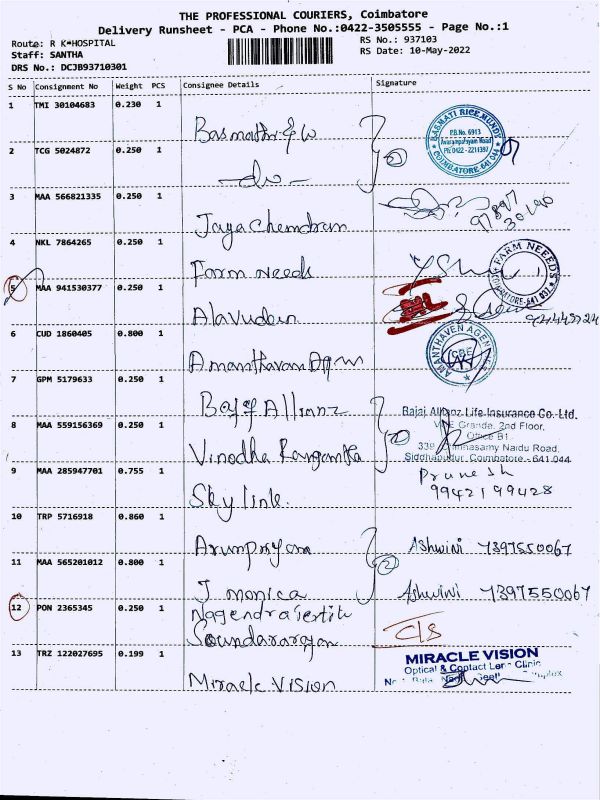 THE PROFESSIONAL COURIERS, Coimbatore
Delivery Runsheet - PCA - Phone No.:0422-3505555 - Page No.:1
Route: R K*HOSPITAL
Staff: SANTHA
DRS No.: DCJB93710301
RS No.: 937103
RS Date: 10-May-2022
S No Consignment No Weight PCS Consignee Details Signature
1 TMI 30104683 0.230 1
BASMATI RICE MUNDY
P.B.No. 6913
PH: 0422 - 2211397
COIMBATORE 641 044
2 TCG 5024872 0.250 1
-do-
3 MAA 566821335 0.250 1
Jaya Chandran
4 NKL 7864265 0.250 1
Farm Needs
FARM NEEEDS
COIMBATORE-641 037
5 MAA 941530377 0.250 1
Alavudeen
6 CUD 1860405 0.800 1
AMANTHAVEN AGEN
CBE
7 GPM 5179633 0.250 1
Bajaj Allianz
Bajaj Allianz Life Insurance Co. Ltd.
Grande, 2nd Floor,
Office B1
8 MAA 559156369 0.250 1
Vinodha
339 Chinnasamy Naidu Road,
Siddhapudur, Coimbatore - 641 044
9 MAA 285947701 0.755 1
Sky link.
9942199428
10 TRP 5716918 0.860 1
Arunpriyam
Ashwini 7397550067
11 MAA 565201012 0.800 1
2
J monica
Ashwini 7397550067
12 PON 2365345 0.250 1
Nagendra Textile
Soundararajan
C/S
13 TRZ 122027695 0.199 1
Miracle Vision
MIRACLE VISION
Optical & Contact Lens Clinic